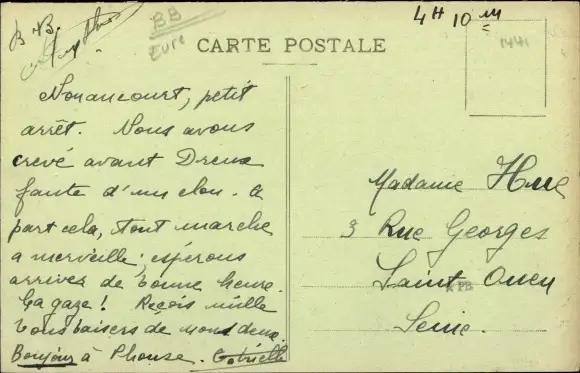 BB
Eure
4H 10 m
1441
CARTE POSTALE
Nonancourt, petit
arrêt. Nous avons
crevé avant Dreux
faute d'un clou. A
part cela, tout marche
a merveille; espérons
arriver de bonne heure.
Ça gaze! Reçois mille
bons baisers de nous deux.
Bonjour à Phonse. Gabrielle
Madame Hue
3 Rue Georges
Saint Ouen
PB
Seine.